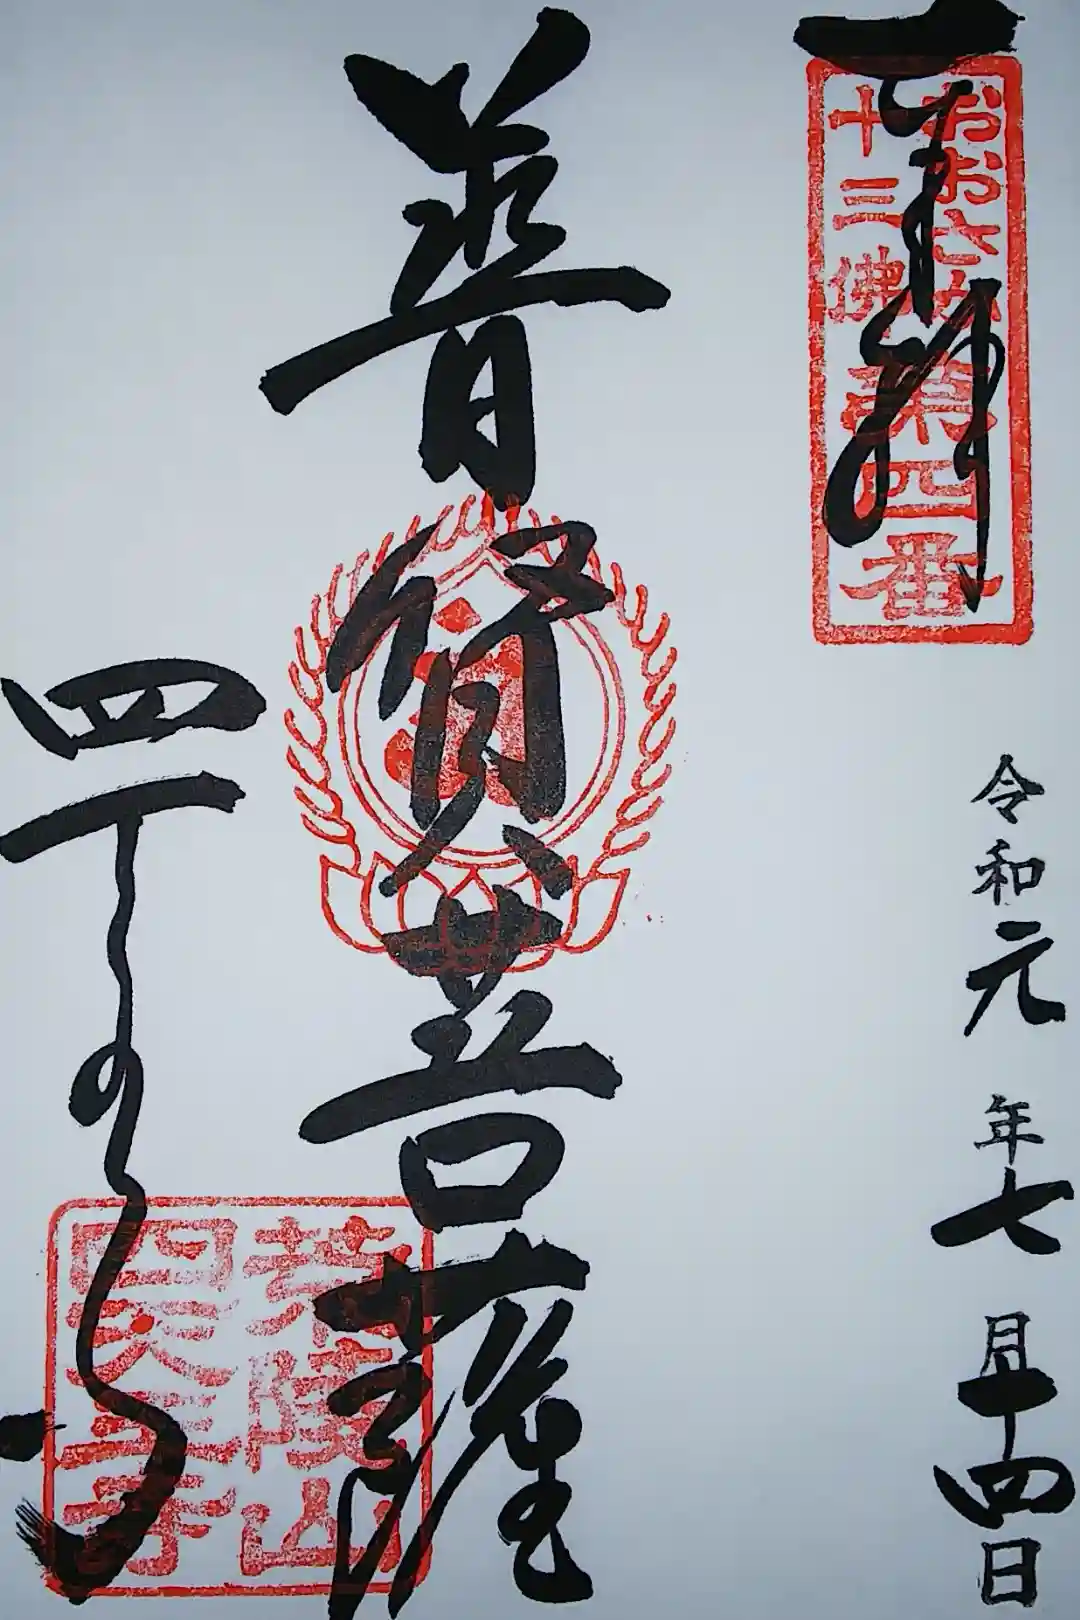 奉拝
おおさか
十三佛
第四番
令和元年七月十四日
普賢菩薩
四天王寺
荒陵山
四天王寺